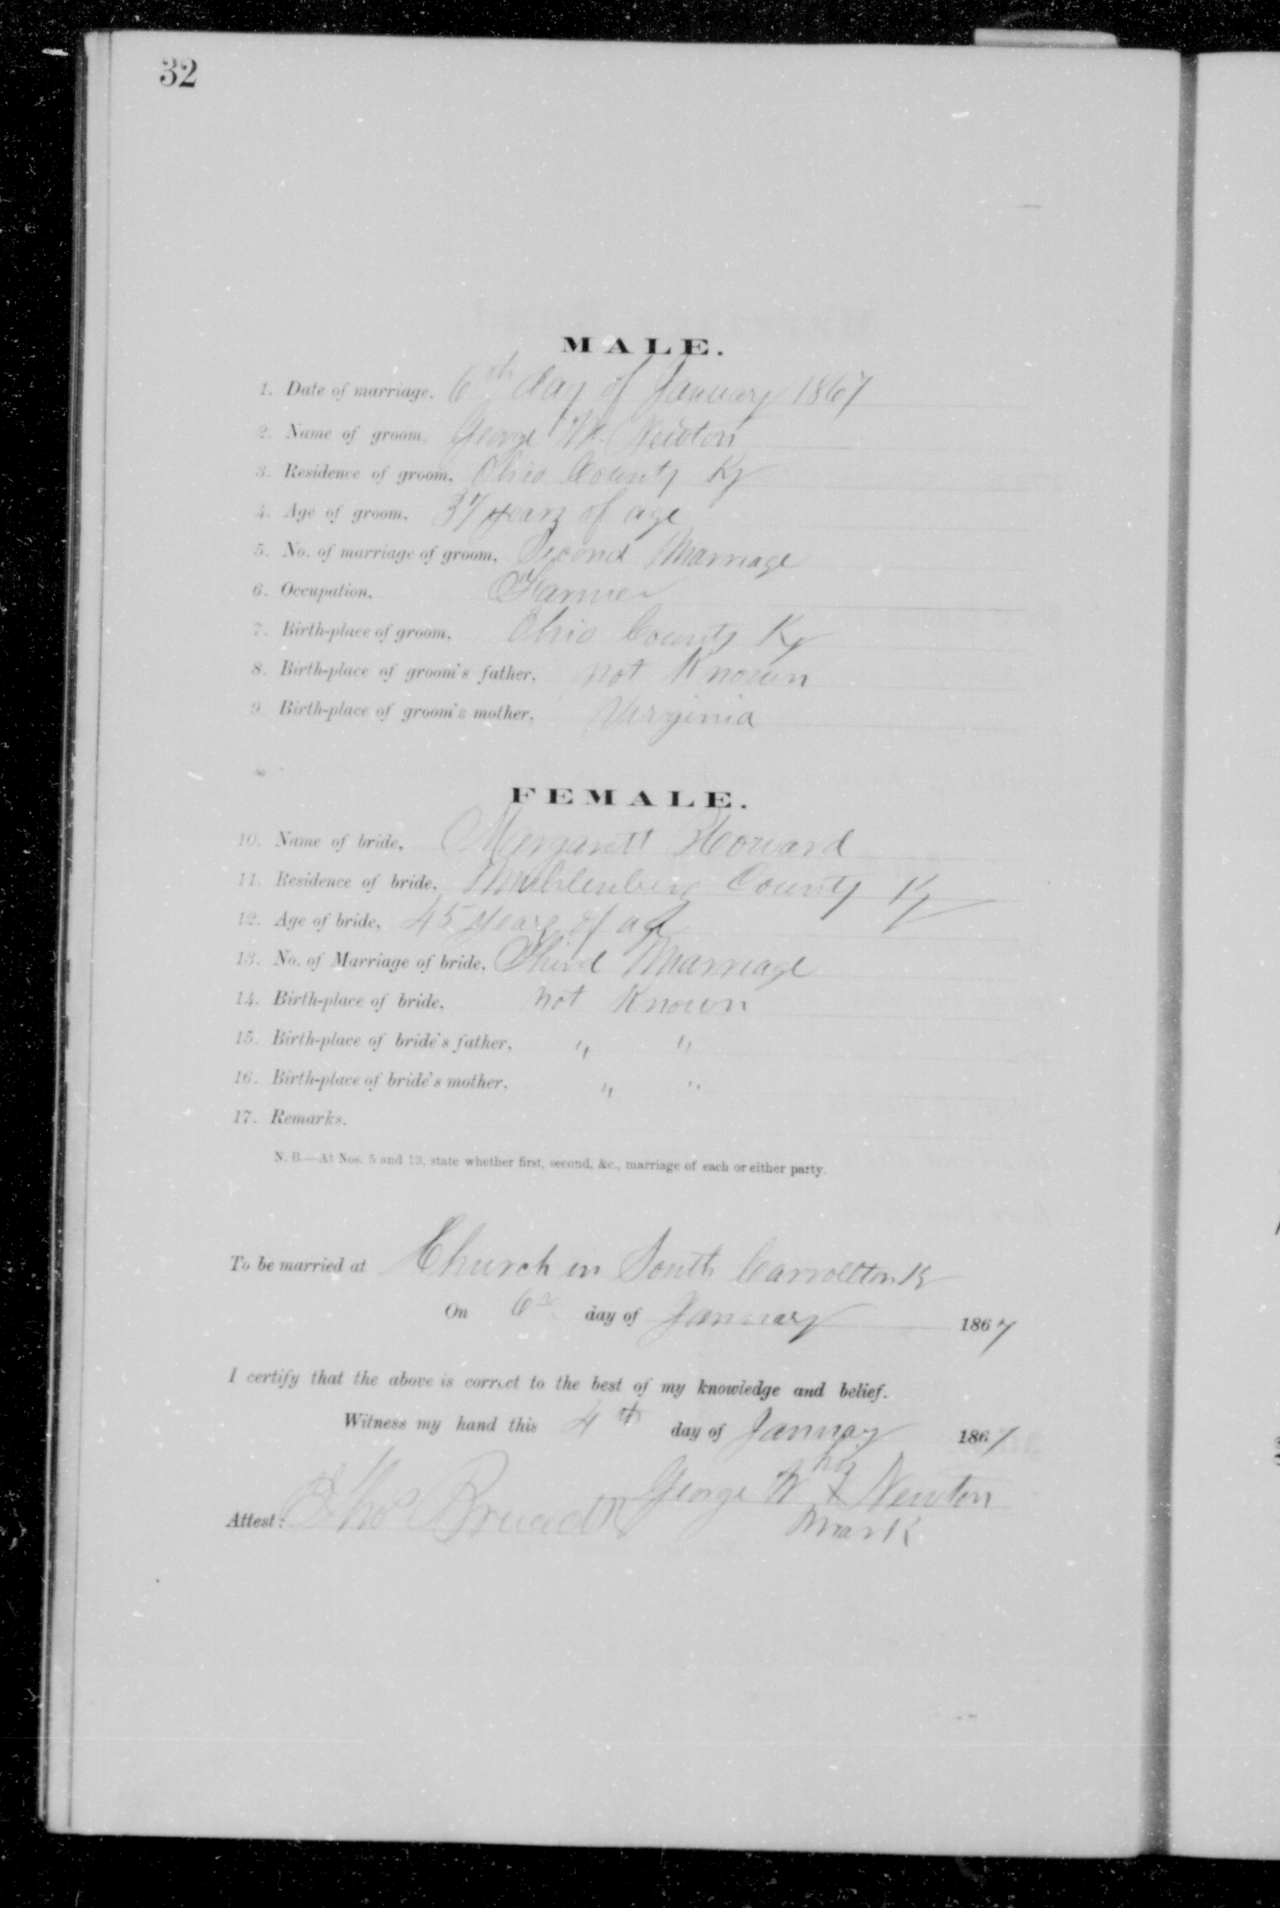 32
MALE.
1. Date of marriage, 6th day of January 1867
2. Name of groom, George W. Newton
3. Residence of groom, Ohio County Ky
4. Age of groom, 37 years of age
5. No. of marriage of groom, Second Marriage
6. Occupation, Farmer
7. Birth-place of groom, Ohio County Ky
8. Birth-place of groom's father, not Known
9 Birth-place of groom's mother, Virginia
FEMALE.
10. Name of bride, Margarett Howard
11. Residence of bride, Muhlenberg County Ky
12. Age of bride, 45 years of age
13. No. of Marriage of bride, Third Marriage
14. Birth-place of bride, not Known
15. Birth-place of bride's father, " "
16. Birth-place of bride's mother, " "
17. Remarks.
N. B.—At Nos. 5 and 13, state whether first, second, &c., marriage of each or either party.
To be married at Church in South Carrollton Ky
On 6th day of January 1867
I certify that the above is correct to the best of my knowledge and belief.
Witness my hand this 4th day of January 1867
his
George W X Newton
mark
Attest: Thos